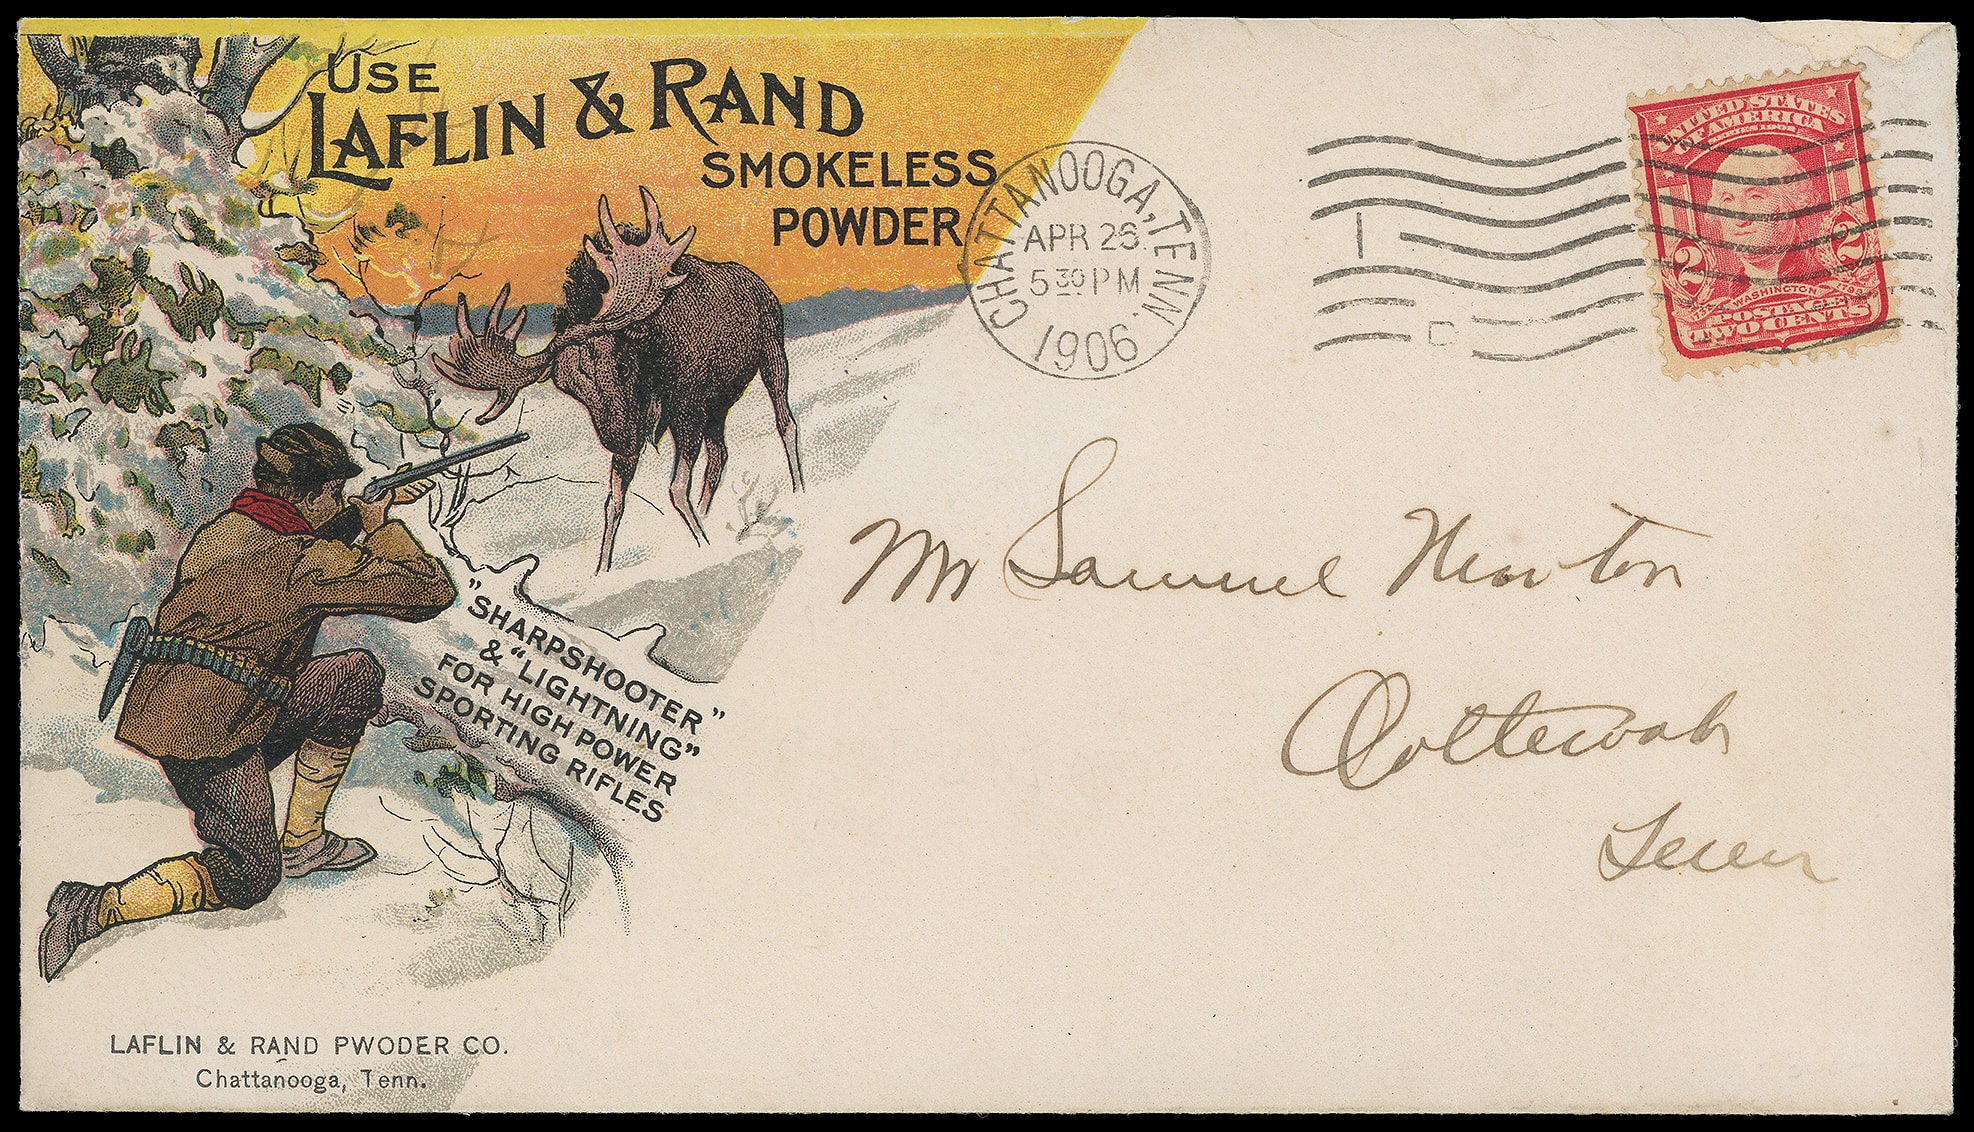 USE
LAFLIN & RAND
SMOKELESS
POWDER
CHATTANOOGA, TENN.
APR 26
5 30 PM
1906
1
D
UNITED STATES
OF AMERICA
2 2
WASHINGTON
POSTAGE
TWO CENTS
Mr Samuel Newton
Ooltewah
Tenn
"SHARPSHOOTER"
& "LIGHTNING"
FOR HIGH POWER
SPORTING RIFLES
LAFLIN & RAND PWODER CO.
Chattanooga, Tenn.